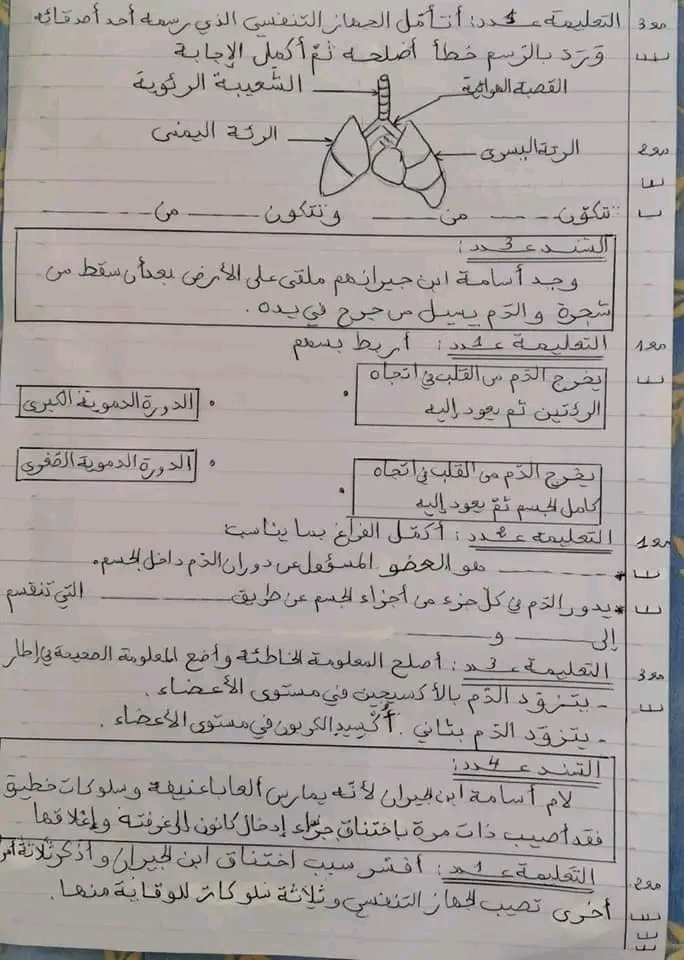 مع3 التعليمة عـ1ـدد: أتأمّل الجهاز التنفسي الذي رسمه أحد أصدقائه
وَرَدَ بالرسم خطأ أصلحه ثمّ أكمل الإجابة
القصبة الهوائية
الشعيبة الرئوية
الرئة اليمنى
الرئة اليسرى
مع2
تتكوّن ـــــ من ـــــ وتتكون ـــــ من ـــــ
السند عـ3ـدد:
وجد أسامة ابن جيرانهم ملقى على الأرض بعد أن سقط من
شجرة والدّم يسيل من جرح في يده.
مع1 التعليمة عـ1ـدد: أربط بسهم
يخرج الدّم من القلب في اتجاه
الرئتين ثم يعود إليه
الدورة الدموية الكبرى
يخرج الدّم من القلب في اتجاه
كامل الجسم ثمّ يعود إليه
الدورة الدموية الصّغرى
مع1 التعليمة عـ2ـدد: أكمّل الفراغ بما يناسب
* ـــــ هو العضو المسؤول عن دوران الدّم داخل الجسم.
* يدور الدّم في كلّ جزء من أجزاء الجسم عن طريق ـــــ التي تنقسم
إلى ـــــ و ـــــ
مع3 التعليمة عـ3ـدد: أصلح المعلومة الخاطئة وأضع المعلومة الصحيحة في إطار
- يتزوّد الدّم بالأكسيجين في مستوى الأعضاء.
- يتزوّد الدّم بثاني. أُكْسيد الكربون في مستوى الأعضاء.
السند عـ4ـدد:
لام أسامة ابن الجيران لأنّه يمارس ألعابا عنيفة وسلوكات خطيرة
فقد أصيب ذات مرة باختناق جرّاء إدخال كانون إلى غرفته وإغلاقها
مع2 التعليمة عـ1ـدد: أفسّر سبب اختناق ابن الجيران وأذكر ثلاثة
أخرى تصيب الجهاز التنفسي وثلاثة سلوكات للوقاية منها.